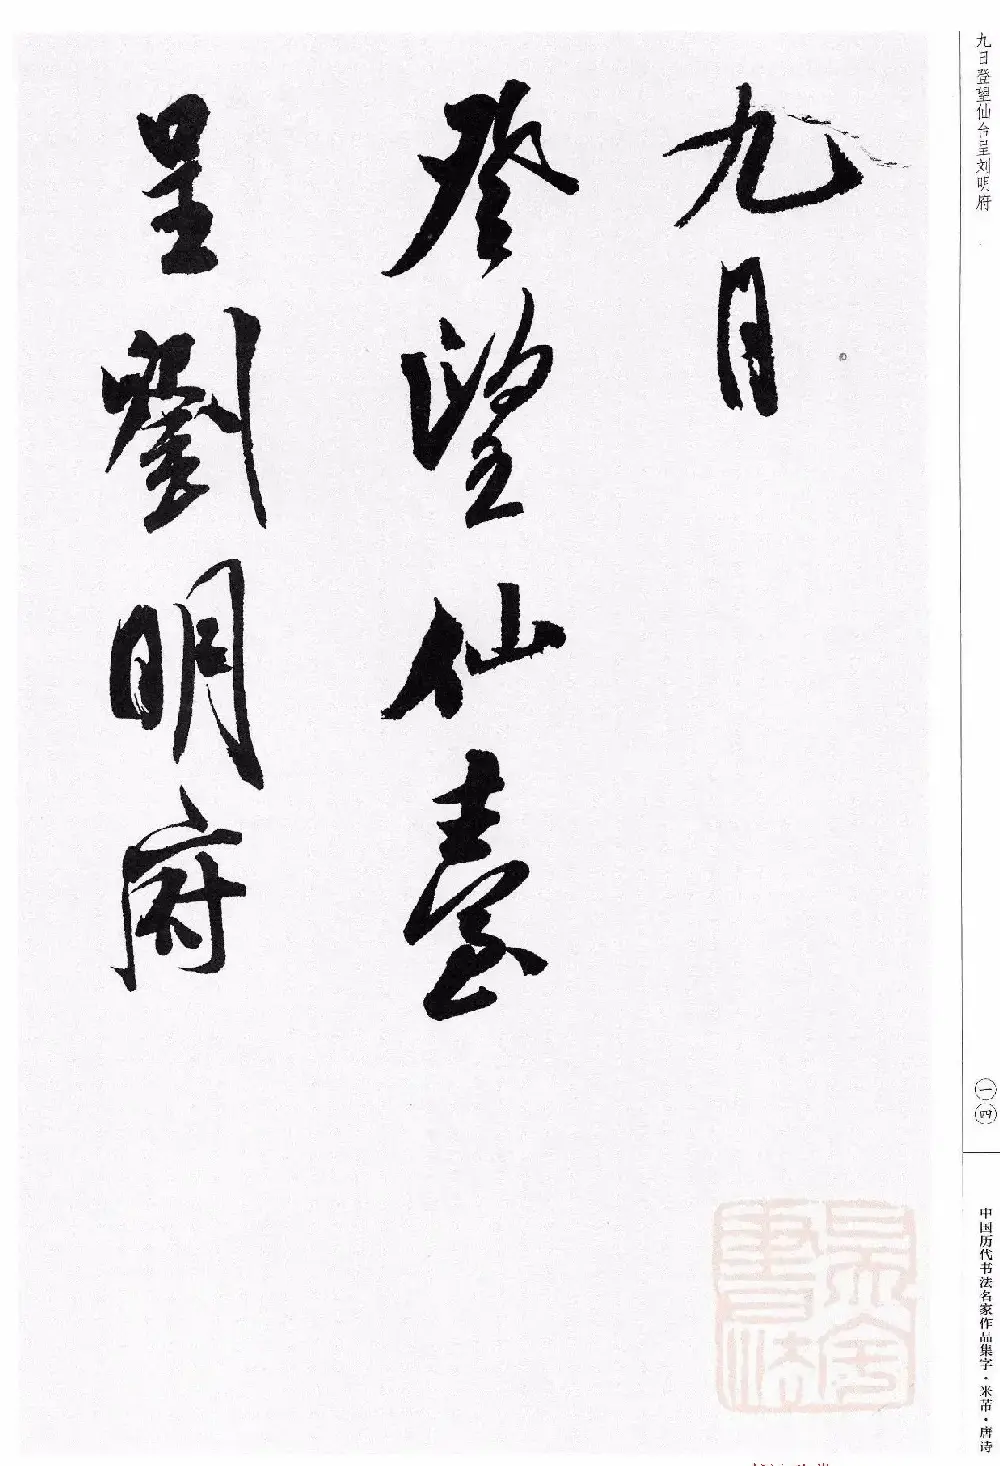 九日
登望仙臺
呈劉明府
九日登望仙台呈刘明府
一四
中国历代书法名家作品集字·米芾·唐诗